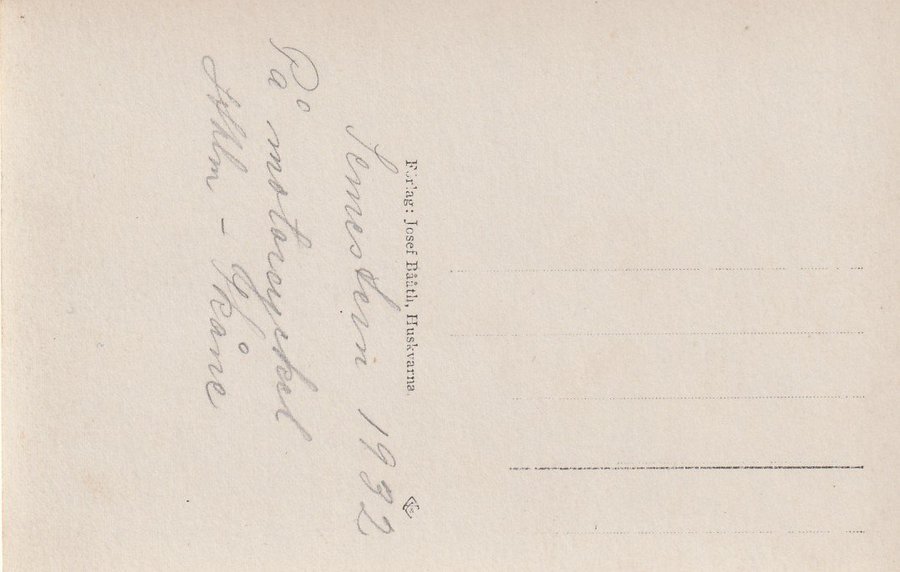 Semestern 1932
På motorcykel
Sthlm - Skåne
Förlag: Josef Bååth, Huskvarna.